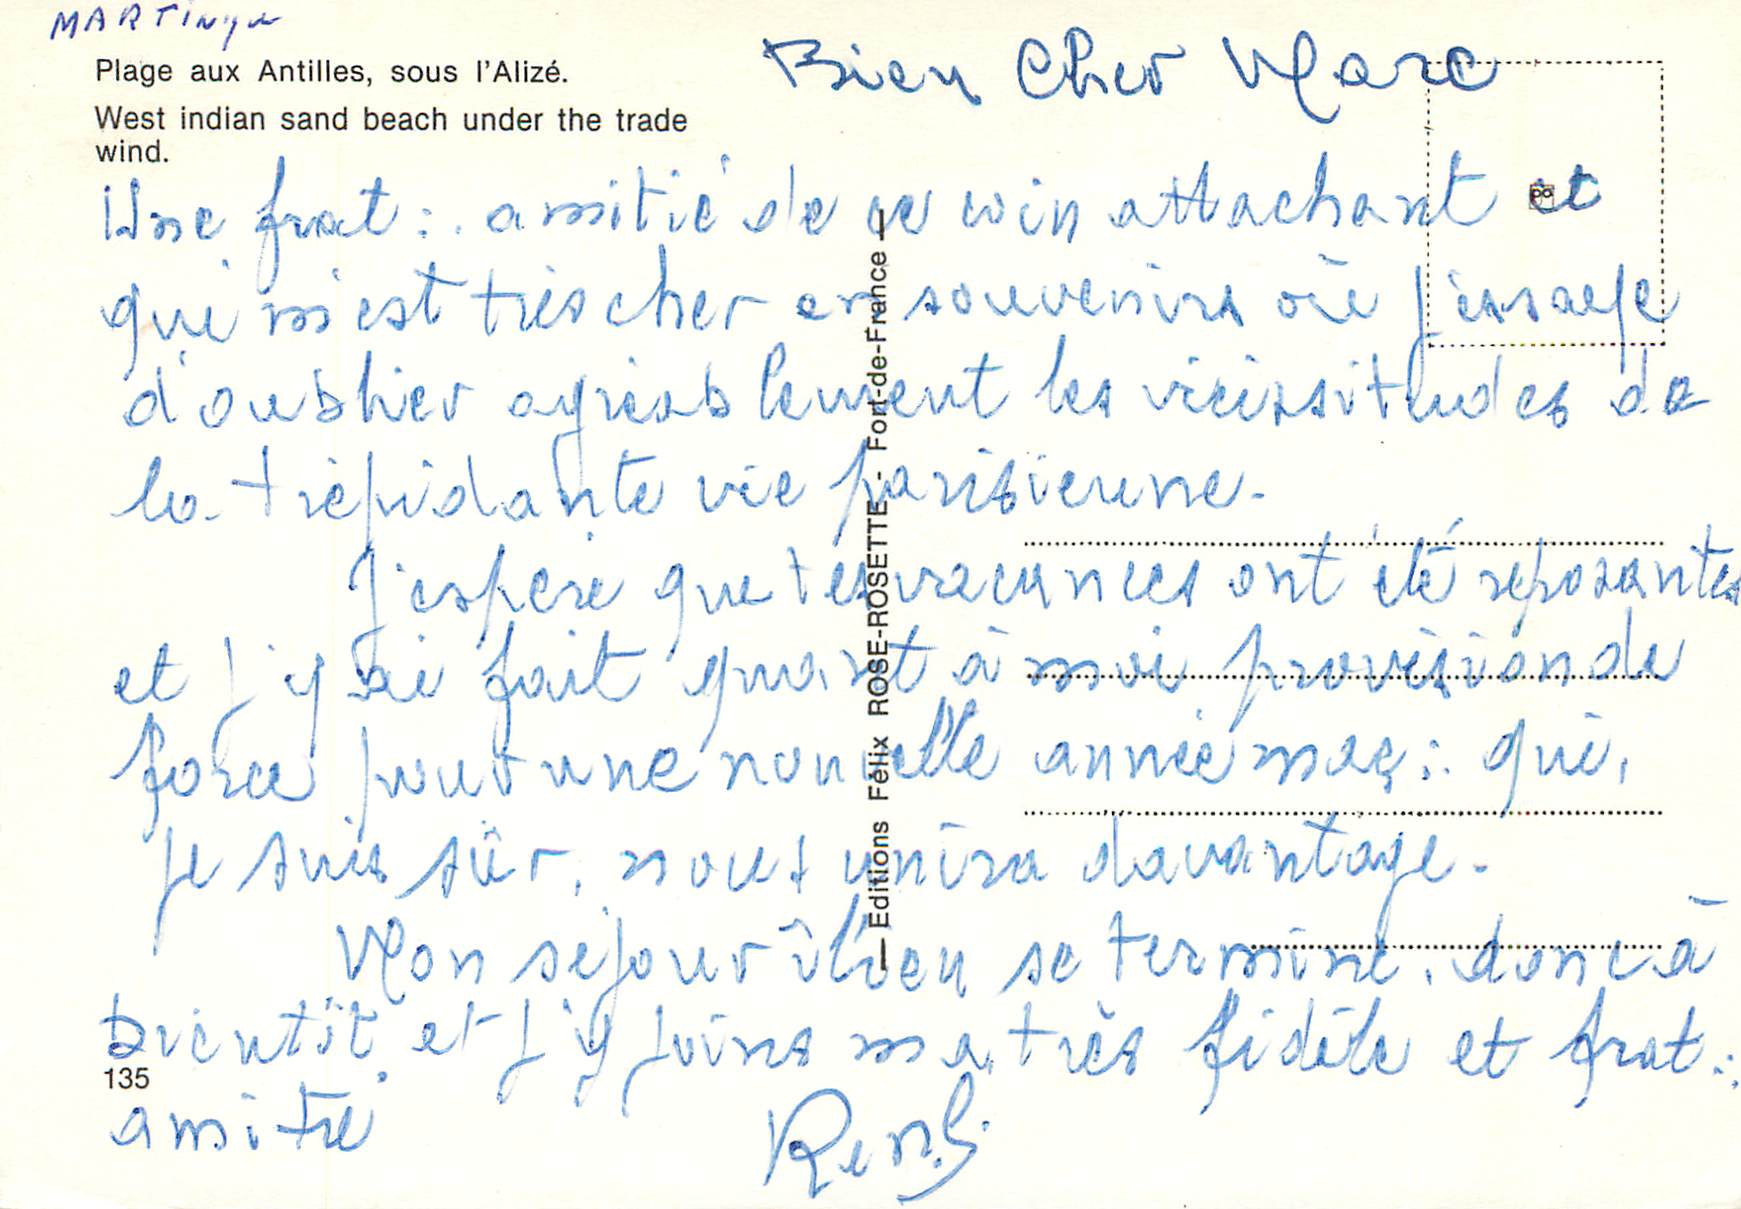 MARTiniqu
Plage aux Antilles, sous l'Alizé.
West indian sand beach under the trade
wind.
Bien Cher Marc
Une frat∴ amitié de ce coin attachant et
qui m'est très cher en souvenirs où j'essaye
d'oublier agréablement les vicissitudes de
la trépidante vie parisienne.
J'espère que tes vacances ont été reposantes
et j'y ai fait quant à moi provision de
force pour une nouvelle année maç∴ qui,
je suis sûr, nous unira davantage.
Mon séjour îlien se termine, donc à
bientôt et j'y joins ma très fidèle et frat∴
amitié
135
— Editions Félix ROSE-ROSETTE - Fort-de-France —